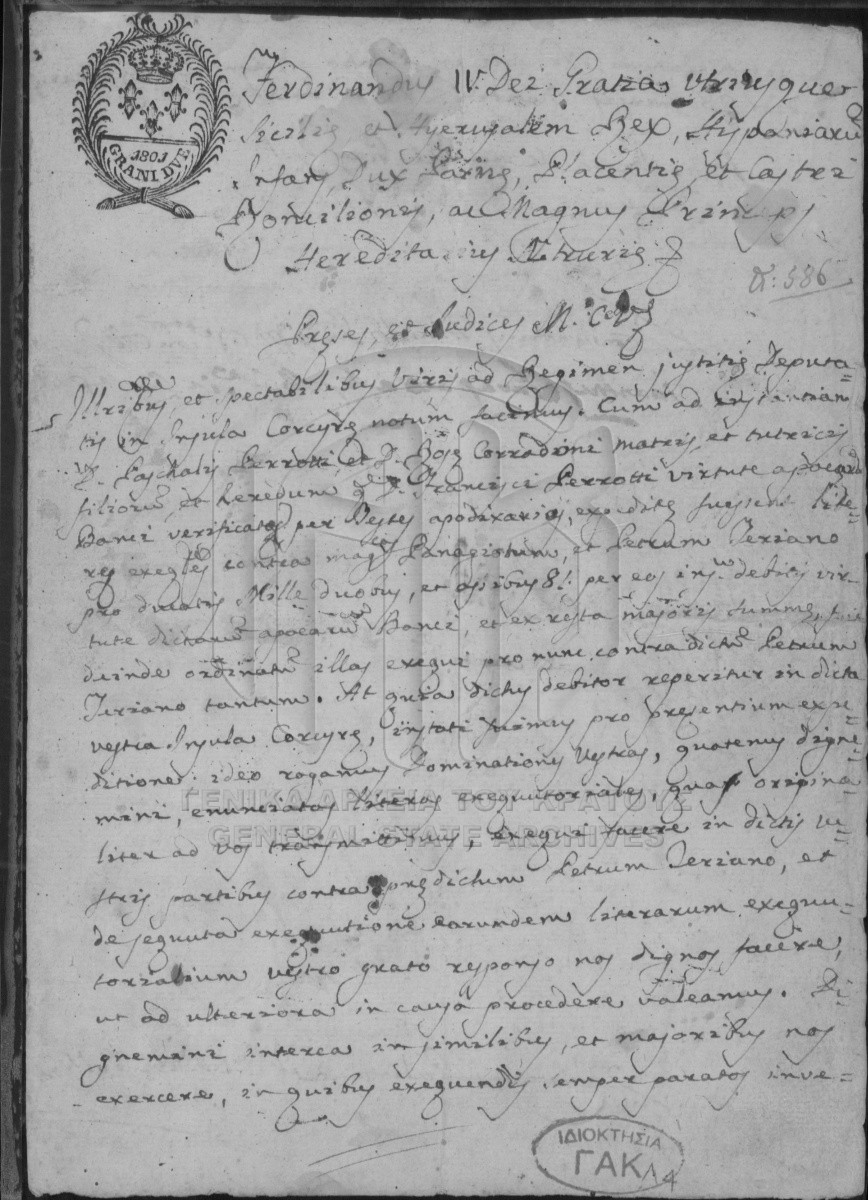 1801
GRANI DVE
Ferdinandus IV. Dei Gratia Utriusque
Sicilię et Hyerusalem Rex, Hyspaniarũ
Infans, Dux Parmę, Placentię et Castri
ac Magnus Princeps
Hereditarius Etrurię
586
Pręses, et Judices M. C. V.
Illribus, et spectabilibus Viris ad Regimen justitię Deputa=
tis in Insula Corcyrę notum facimus. Cum ad instantiam
D. Paschalis Perrotti et D. Rosę Corradini matris, et tutricis
filiorũ et heredum qm D. Francisci Perrotti virtute apocarũ
Banci verificatas per Testes apodixarios, expeditę fuissent lite=
res exegles contra magcos Panagiotum, et Petrum Teriano
pro ducatis Mille duobus, et assibus 8/. per eos ins. debitis vir
tute dictarũ apocarũ Banci, et ex resta majoris summę, fuit
deinde ordinatũ illas exequi pro nunc contra dictũ Petrum
Teriano tantum. At quia dictus debitor reperitur in dicta
vestra Insula Corcyrę, instati fuimus pro presentium expe=
ditione: ideo rogamus Dominationes Vestras, quatenus digne=
mini, enunciatas literas exequutoriales, quas origina
liter ad vos transmittimus, exequi facere in dictis ve
stris partibus contra prędictum Petrum Teriano, et
de sequuta exequutione earundem literarum exequu=
torialium vestro grato responso nos dignos facere,
ut ad ulteriora in causa procedere valeamus. Di=
gnemini interea in similibus, et majoribus nos
exercere, in quibus exequendis semper paratos inve=
ΓΕΝΙΚΑ ΑΡΧΕΙΑ ΤΟΥ ΚΡΑΤΟΥΣ
GENERAL STATE ARCHIVES
ΙΔΙΟΚΤΗΣΙΑ
ΓΑΚ